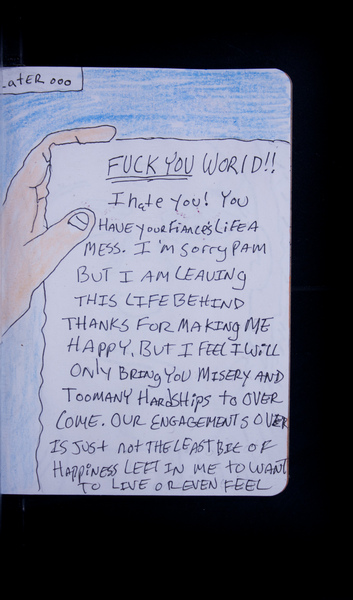 LATER ...
FUCK YOU WORLD!!
I hate you! You
HAVE your FIANCE'S LIFE A
MESS. I'm sorry PAM
BUT I AM LEAVING
THIS LIFE BEHIND
THANKS FOR MAKING ME
HAPPY, BUT I FEEL I WILL
ONLY BRING YOU MISERY AND
TOO MANY HARDSHIPS to OVER
COME. OUR ENGAGEMENTS OVER
IS JUST not THE LEAST BIT OF
HAPPINESS LEFT IN ME TO WANT
TO LIVE OR EVEN FEEL